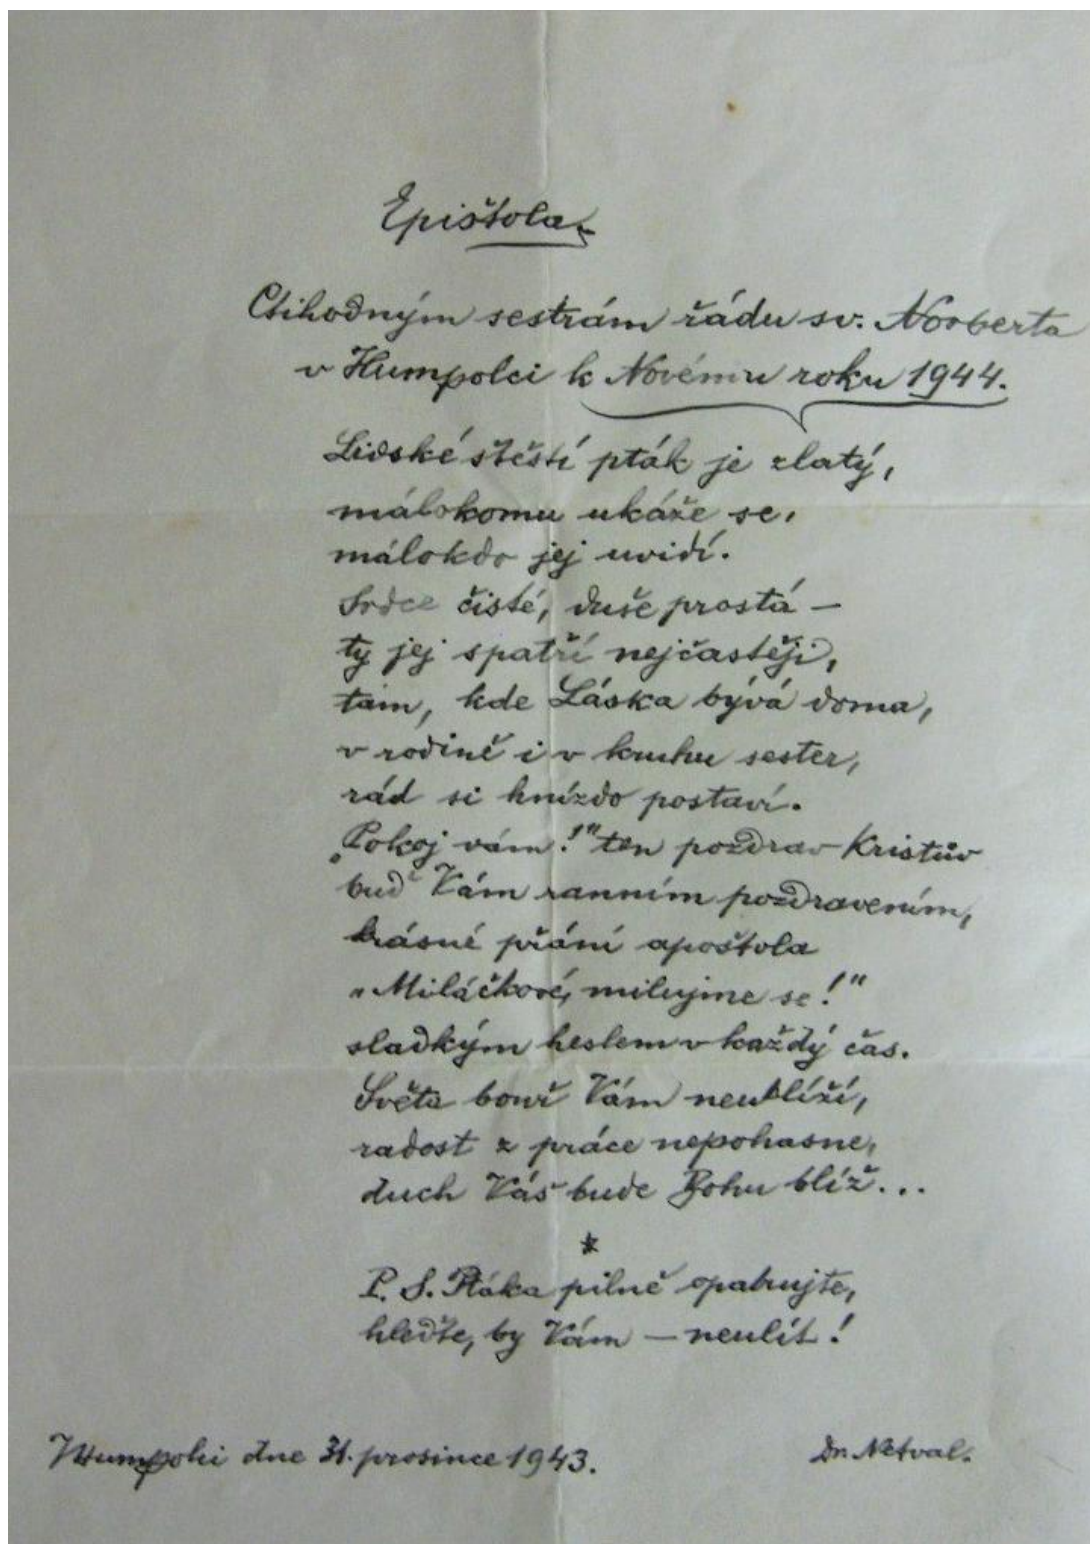 Epištola.
Ctihodným sestrám řádu sv. Norberta
v Humpolci k Novému roku 1944.
Lidské štěstí pták je zlatý,
málokomu ukáže se,
málokdo jej uvidí.
Srdce čisté, duše prostá –
ty jej spatří nejčastěji,
tam, kde Láska bývá doma,
v rodině i v kruhu sester,
rád si hnízdo postaví.
„Pokoj vám!" ten pozdrav Kristův
buď Vám ranním pozdravením,
krásné přání apoštola
„Miláčkové, milujme se!"
sladkým heslem v každý čas.
Světa bouř Vám neublíží,
radost z práce nepohasne,
duch Váš bude Bohu blíž...
*
P. S. Ptáka pilně opatrujte,
hleďte, by Vám – neulít!
Humpolci dne 31. prosince 1943.
Dr. Netval.